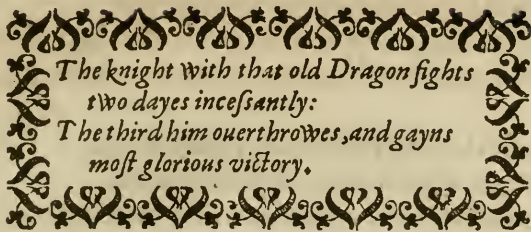 The knight with that old Dragon fights
two dayes inceſsantly:
The third him ouerthrowes, and gayns
moſt glorious victory.